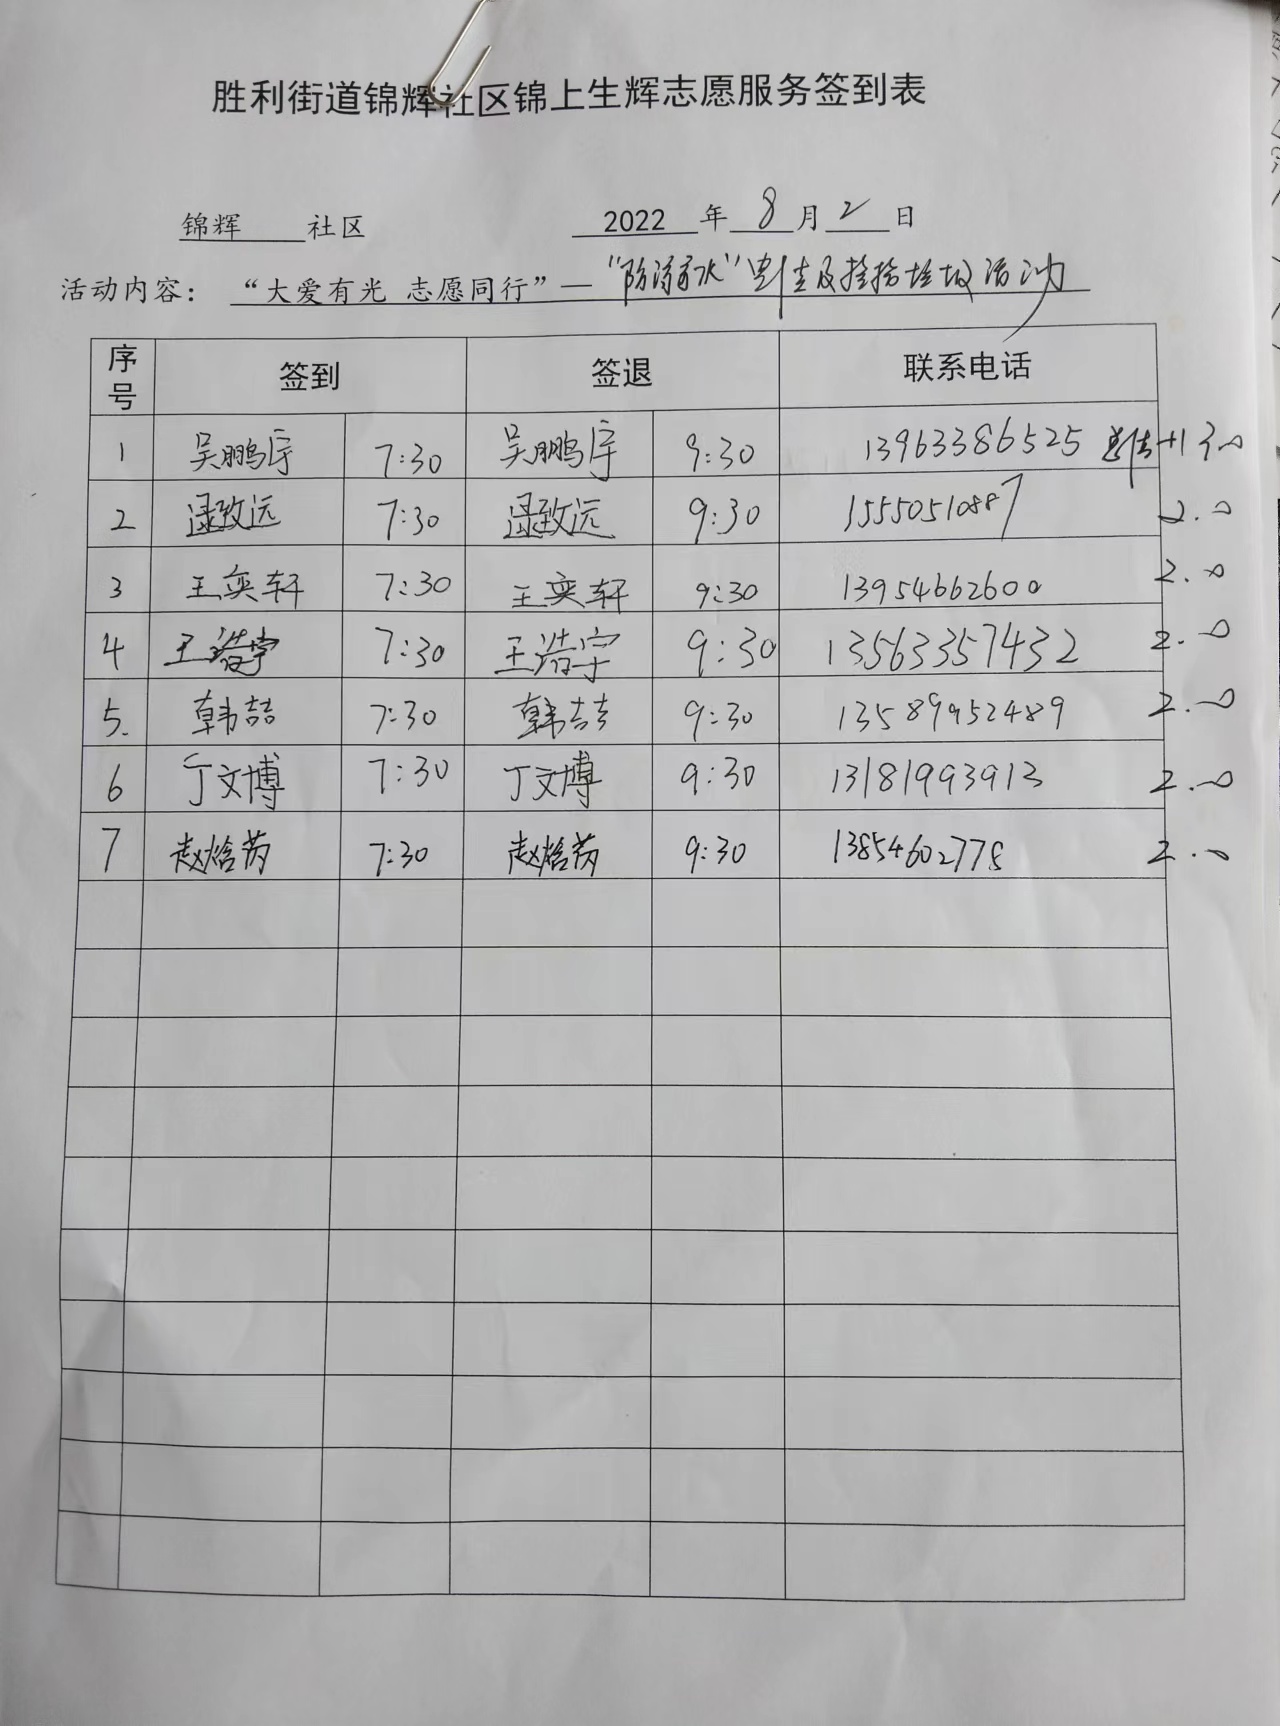 胜利街道锦辉社区锦上生辉志愿服务签到表
锦辉 社区 2022 年 8 月 2 日
活动内容： “大爱有光 志愿同行”—“防溺水” 及捡拾垃圾活动
序号 签到 签退 联系电话
1 吴鹏宇 7:30 吴鹏宇 9:30 13963386525 +1 3.0
2 渌致远 7:30 渌致远 9:30 15550510887 2.0
3 王奕轩 7:30 王奕轩 9:30 13954662600 2.0
4 王浩宇 7:30 王浩宇 9:30 13563357432 2.0
5. 韩喆 7:30 韩喆 9:30 13589952489 2.0
6 丁文博 7:30 丁文博 9:30 13181993913 2.0
7 赵焓芮 7:30 赵焓芮 9:30 13854602778 2.0